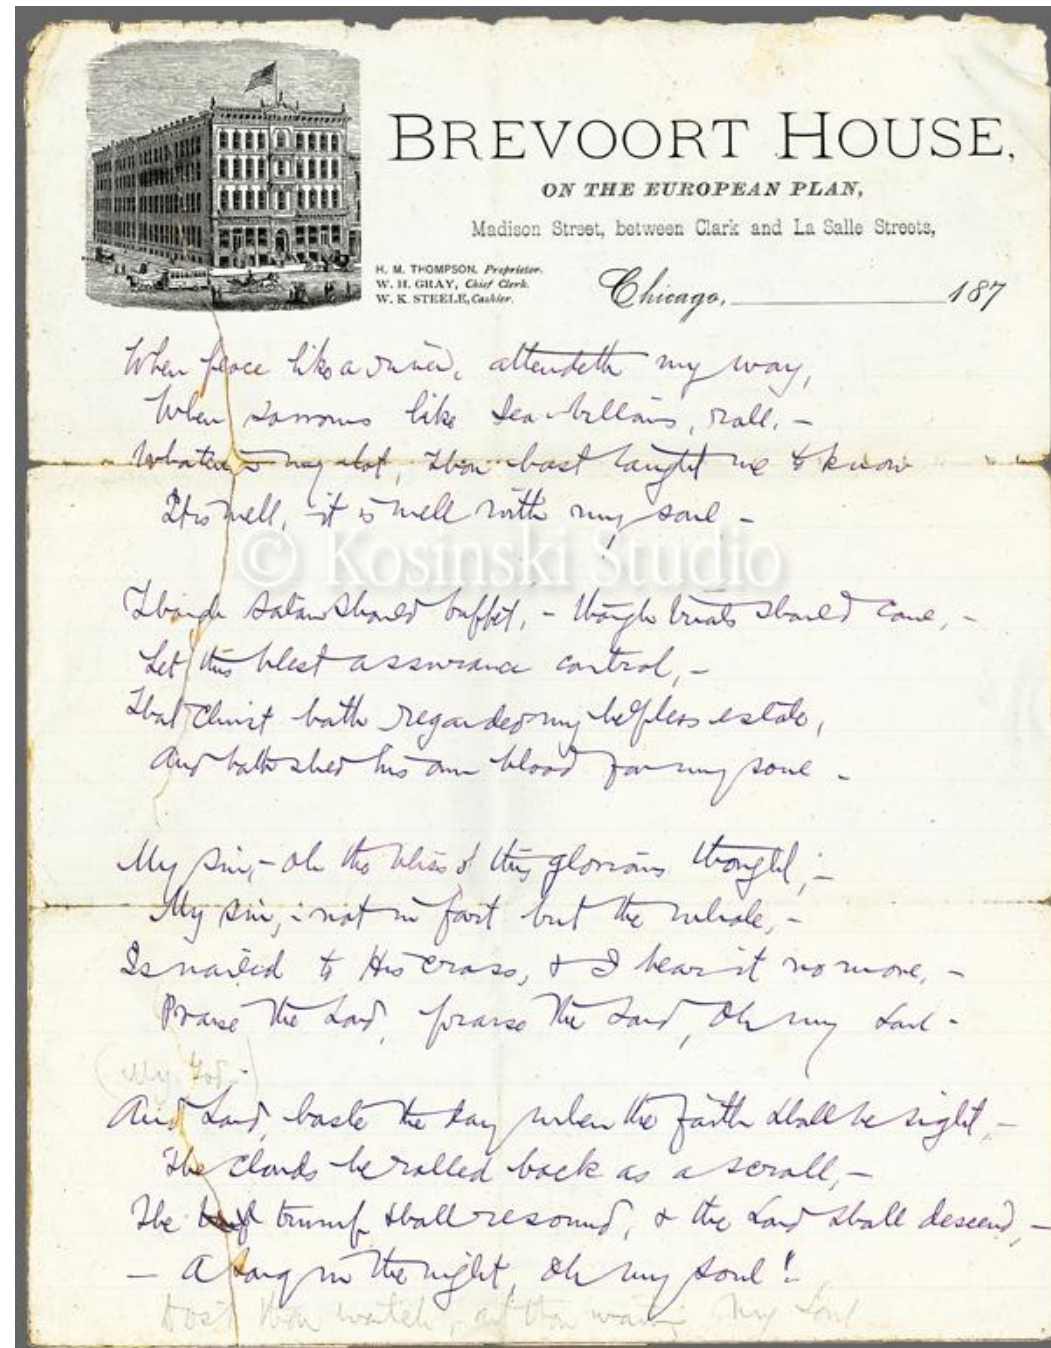 BREVOORT HOUSE,
ON THE EUROPEAN PLAN,
Madison Street, between Clark and La Salle Streets,
H. M. THOMPSON, Proprietor.
W. H. GRAY, Chief Clerk.
W. K. STEELE, Cashier.
Chicago, 187
When peace like a river, attendeth my way,
When sorrows like sea-billows, roll, -
Whatever my lot, Thou hast taught me to know
It is well, it is well with my soul -
© Kosinski Studio
Though Satan should buffet, - though trials should come, -
Let this blest assurance control, -
That Christ hath regarded my helpless estate,
And hath shed his own blood for my soul -
My sin, - oh the bliss of this glorious thought, -
My sin, - not in part but the whole, -
Is nailed to His cross, & I bear it no more, -
Praise the Lord, praise the Lord, Oh my Soul -
(My God -)
And Lord, haste the day when the faith shall be sight, -
The clouds be rolled back as a scroll, -
The trump shall resound, & the Lord shall descend, -
- A song in the night, Oh my soul! -
Dost thou watch, art thou my Soul